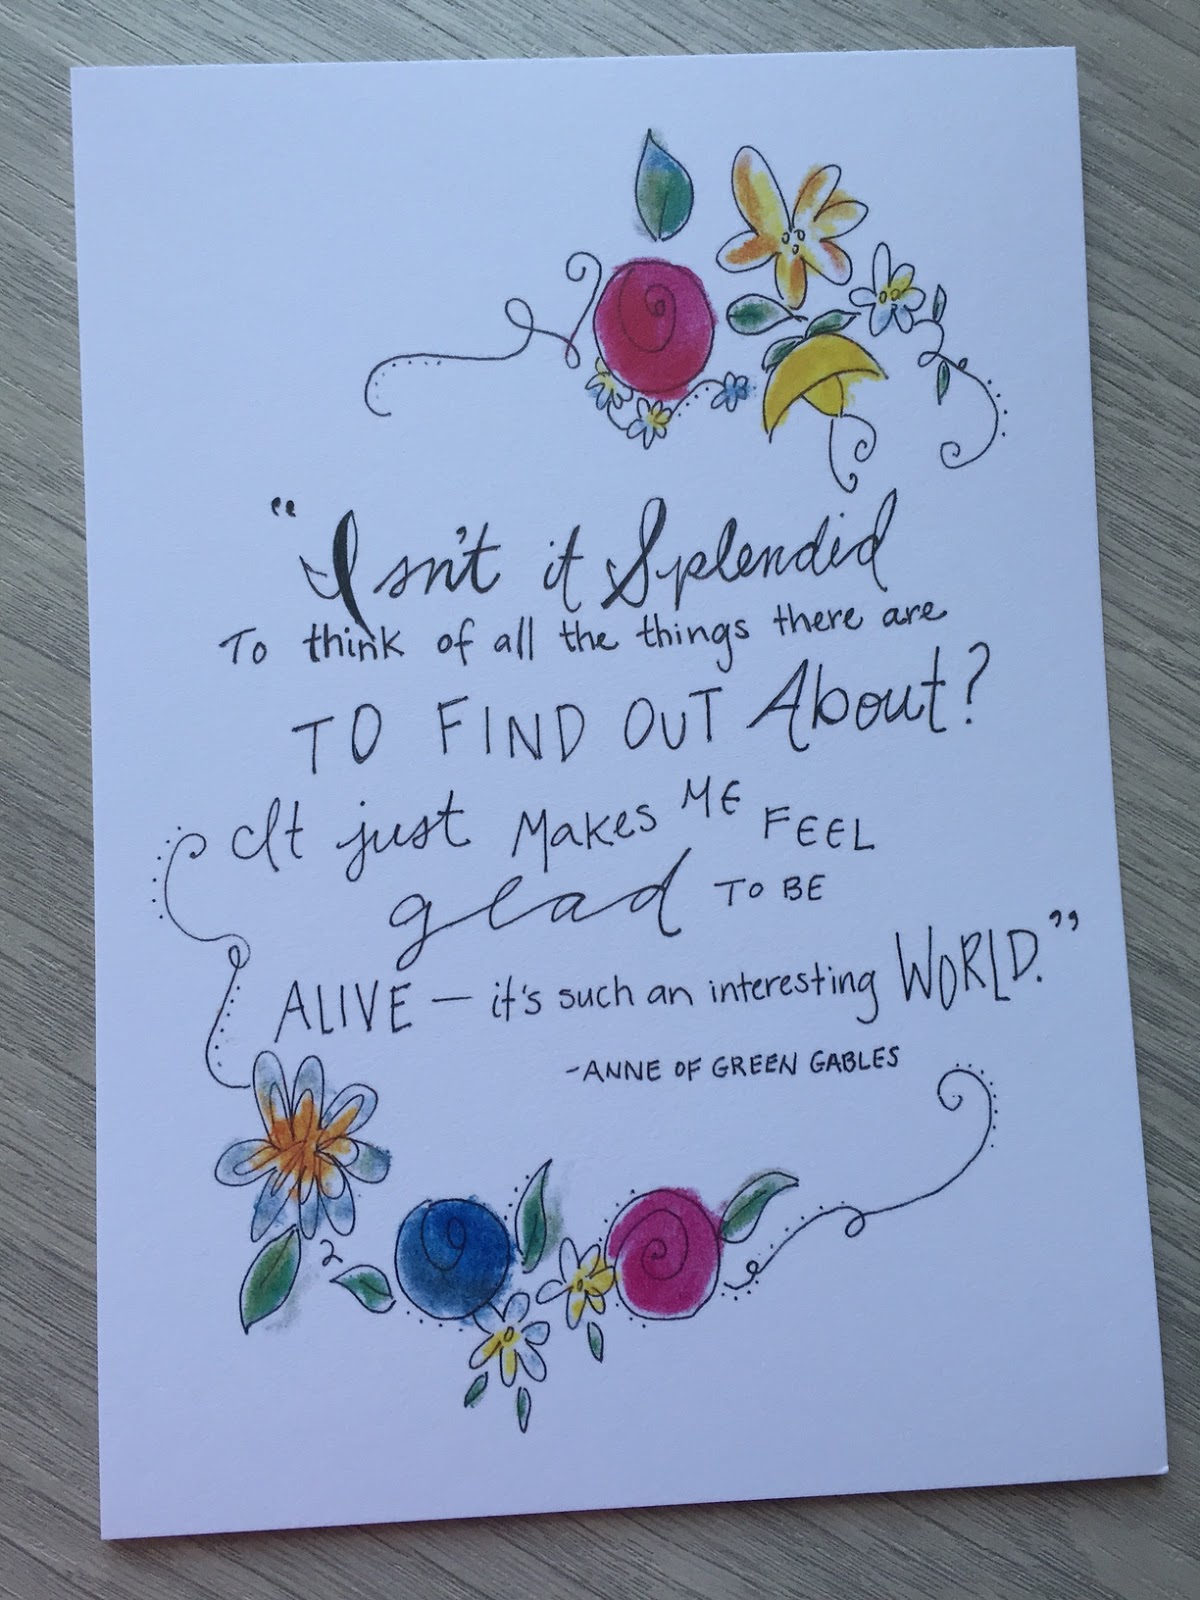 "Isn't it Splendid
To think of all the things there are
TO FIND OUT About?
It just makes ME FEEL
glad TO BE
ALIVE — it's such an interesting WORLD."
-ANNE OF GREEN GABLES